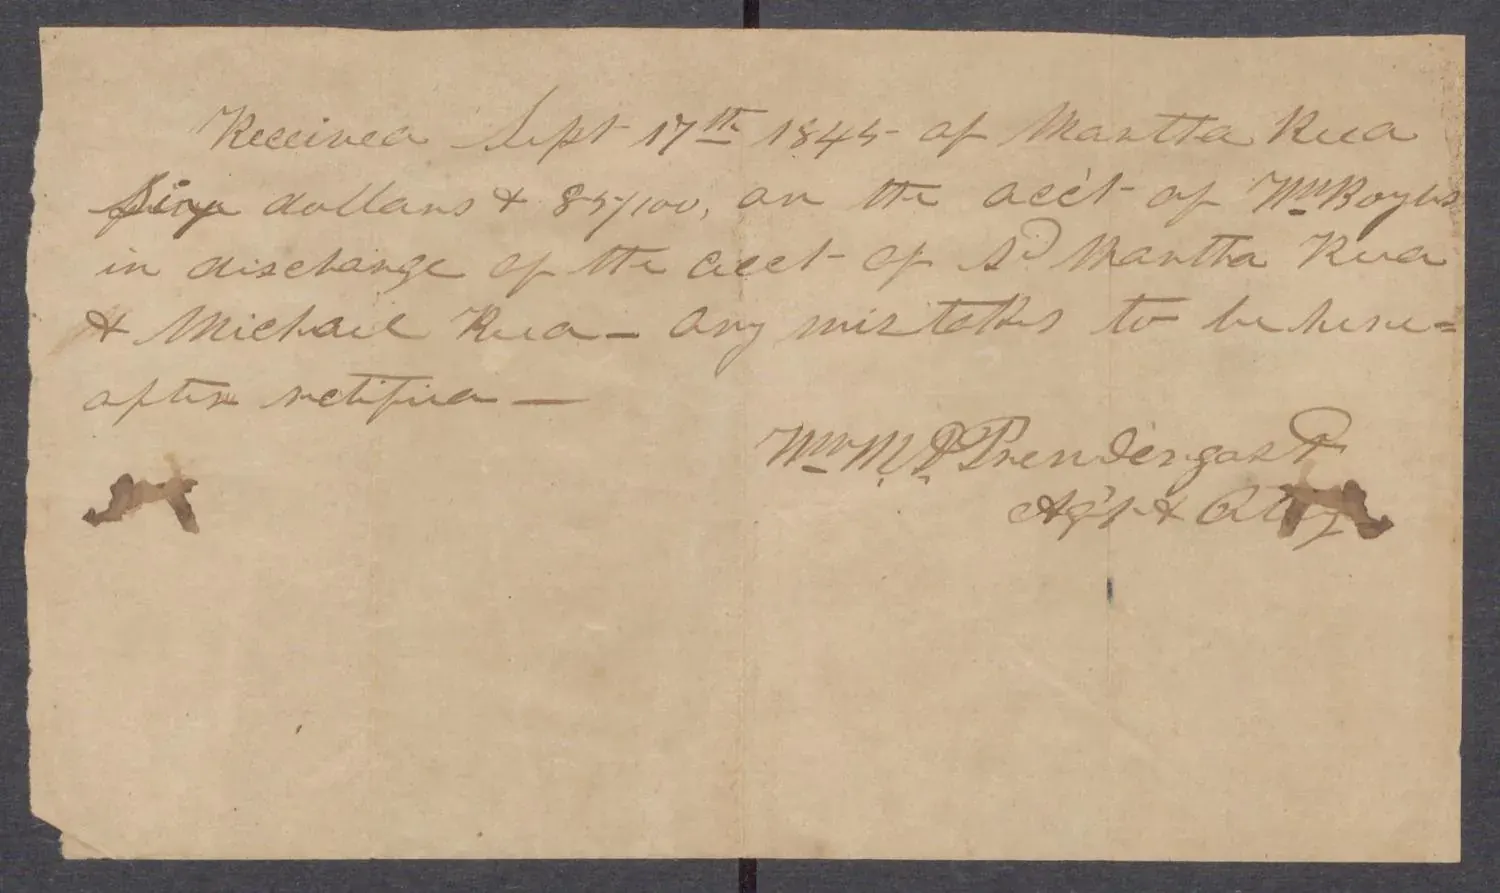 Received Sept 17th 1845 of Martha Rua
dollars & 85/100, on the acc't of Wm Boyles
in discharge of the acct of sd Martha Rua
& Michael Rua – any mistakes to be here=
after rectified —
Wm M. P. Prendergast
Ag't & Atty